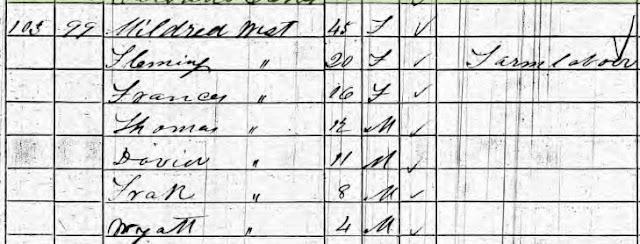 103 99 Mildred West 45 F ✓
Fleming " 20 F ✓ Farm labour
Frances " 16 F ✓
Thomas " 12 M ✓
David " 11 M ✓
" 8 M ✓
Wyatt " 4 M ✓